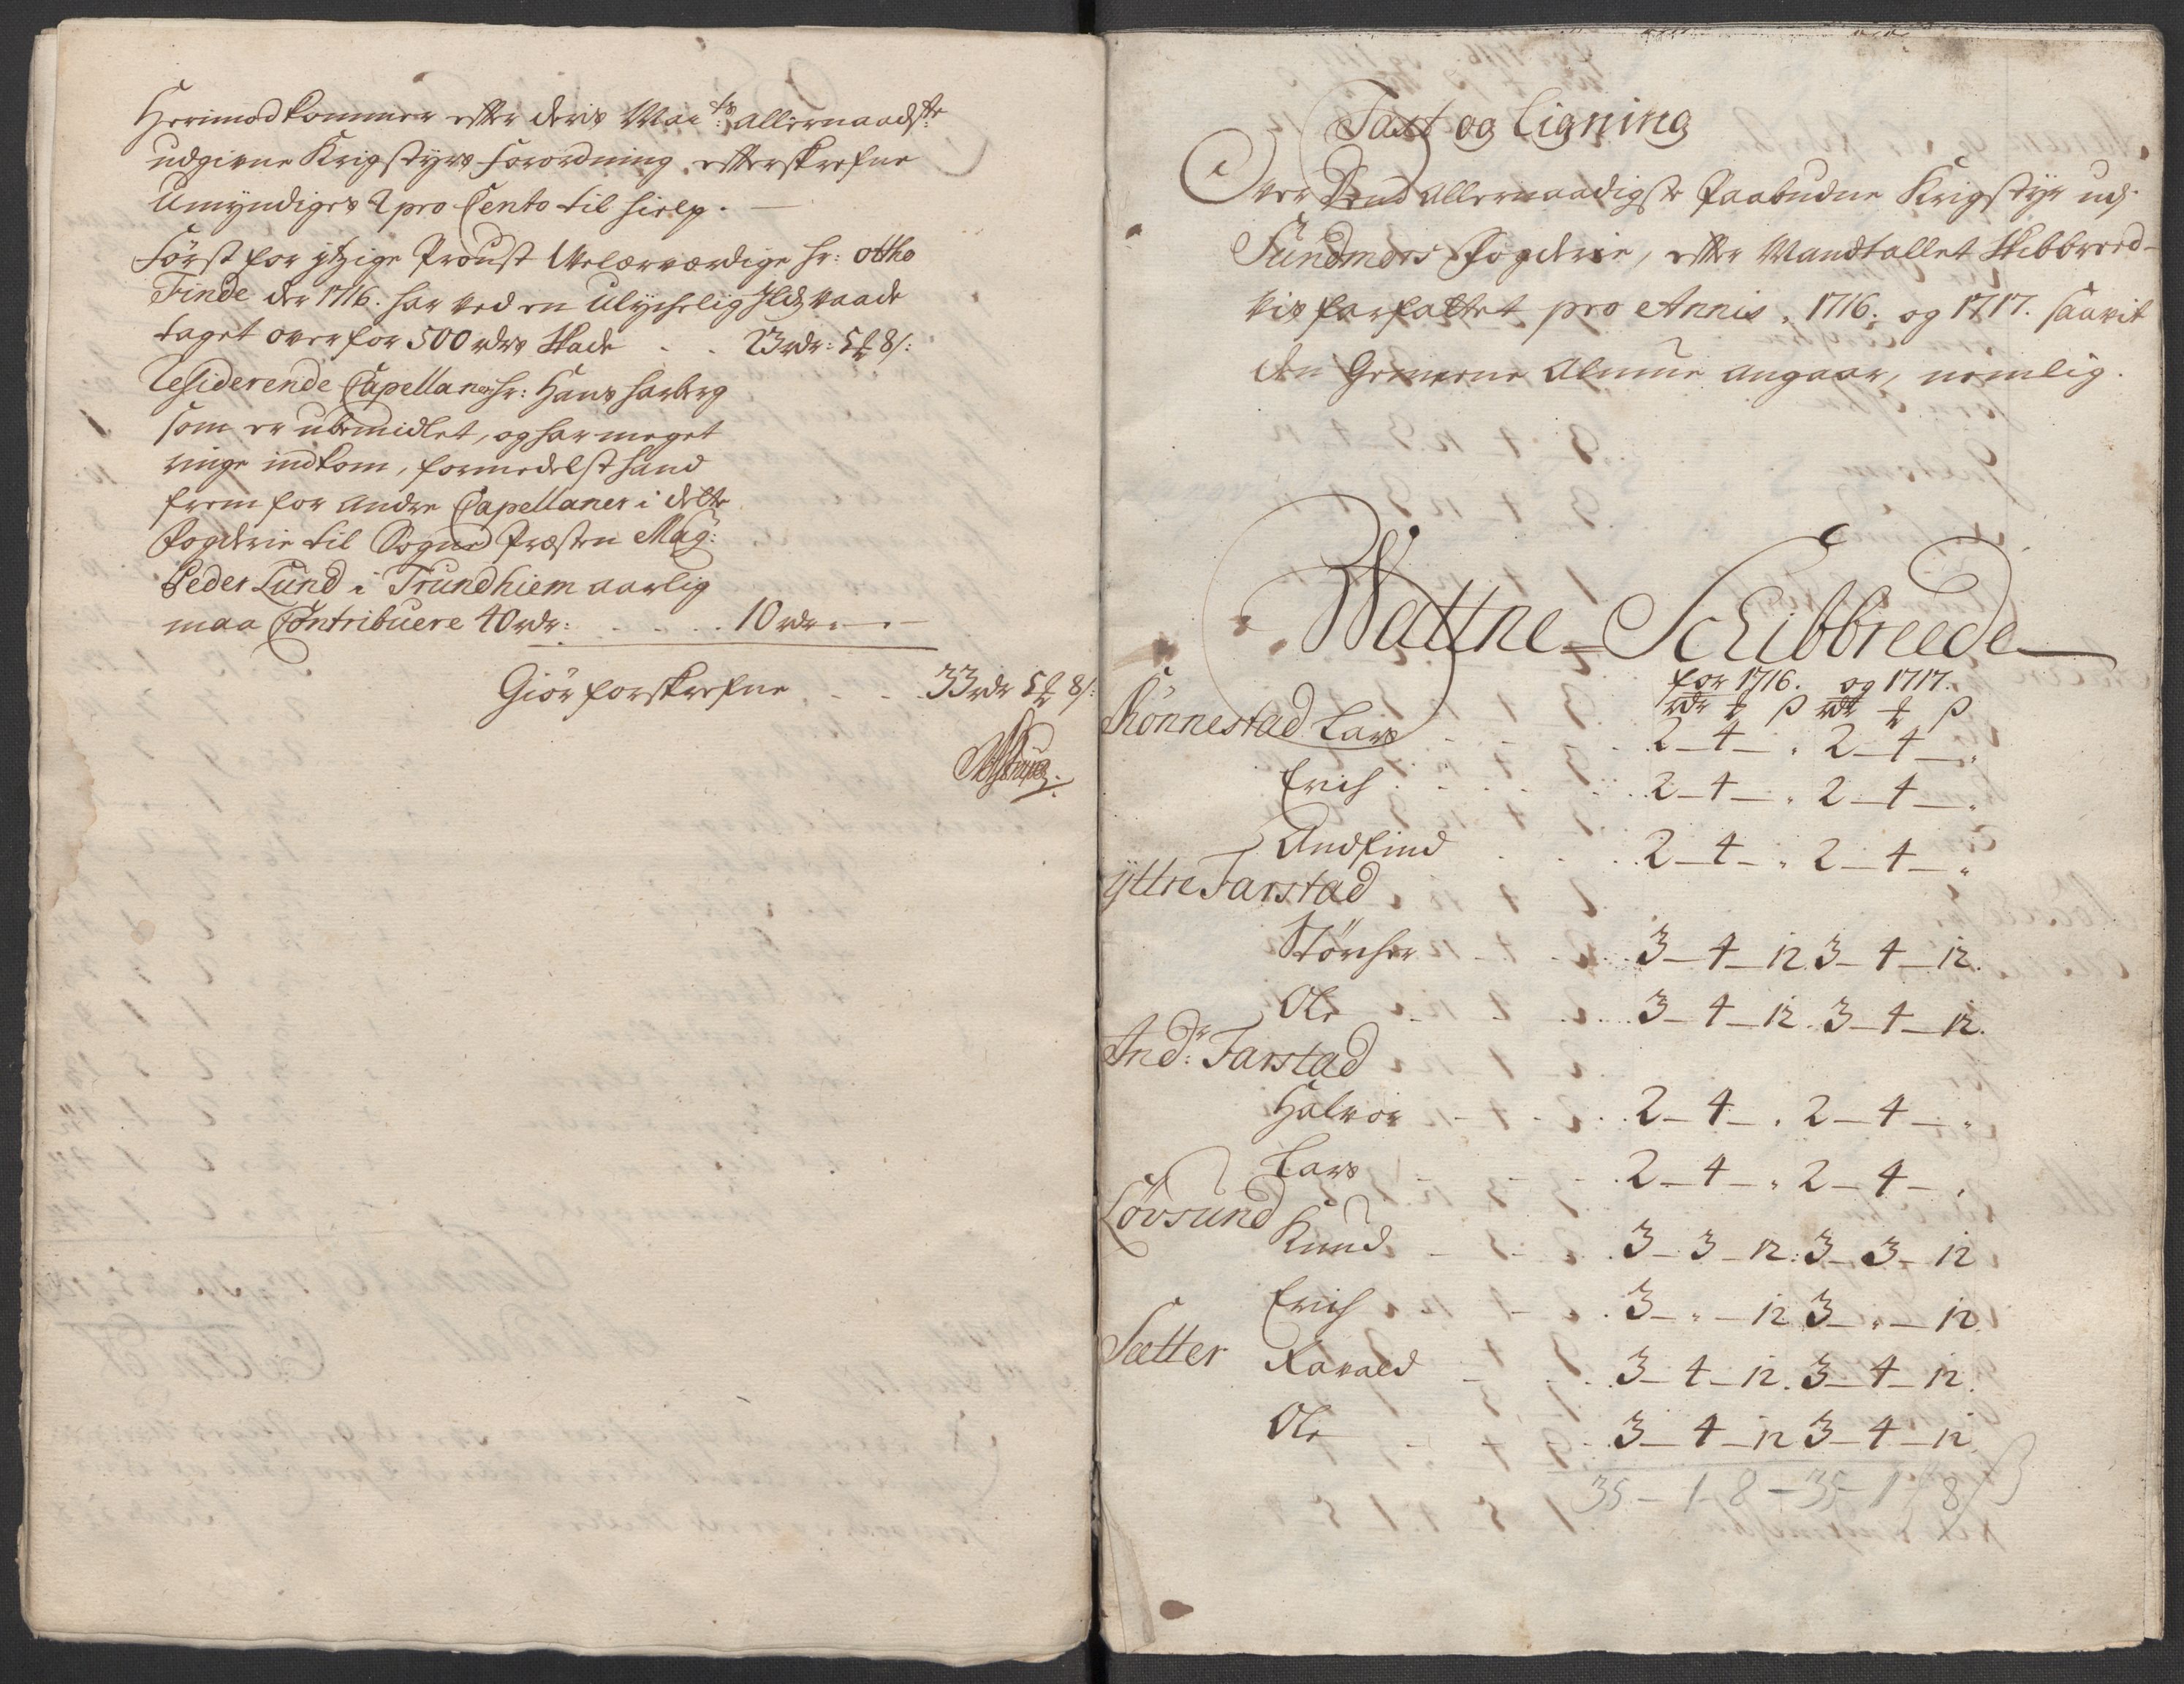 Herimod kommer efter deris Maÿts: allernaadste
udgivne Krigstyrs forordning efterskrefne
Umyndiges 2 pro Cento til hielp.
Först for itzige Proust Welærværdige hr: Ottho
Finde der 1716. har ved en Ulychelig Ild vaade
taget over for 500 rdrs Skade . . 23 rdr: 5 8 s:
Residerende Capellan hr: Hans harberg
som er ubemidlet, og har meget
ringe indkom, formedelst hand
frem for andre Capellaner i dette
fogderie til Sogne Præsten Mag:
Peder Lund i Trundhiem aarlig
maa Contribuere 40 rdr: . . . 10 rdr
Giör forskrefne . . 33 rdr 5 8 s:
Taxt og Ligning
Over Dend allernaadigste paabudne Krigstyr udj
Sundmørs fogderie, efter Mandtallet Skibbreed-
vis forfattet pro Annis 1716. og 1717. saavit
den Gemeene Almue angaar, nemlig.
Wattne Schibbreede
for 1716. og 1717.
rdr ß rdr ß
Rönnestad Lars . . 2 4 " 2 4 "
Erich . . 2 4 " 2 4 "
Andfind . . 2 4 " 2 4 "
ÿttre Farstad
Störcher . . 3 4 12 3 4 12.
Ole . . 3 4 12. 3 4 12.
Indr: Farstad
Halvor . . 2 4 " 2 4 "
Lars . . 2 4 " 2 4 "
Lövsund Knud . . 3 3 12: 3 3 12
Erich . . 3 " 12 3 " 12.
Sætter Ravald . . 3 4 12. 3 4 12.
Ole . . 3 4 12 3 4 12
35 - 1 - 8 - 35 - 1 8 ß